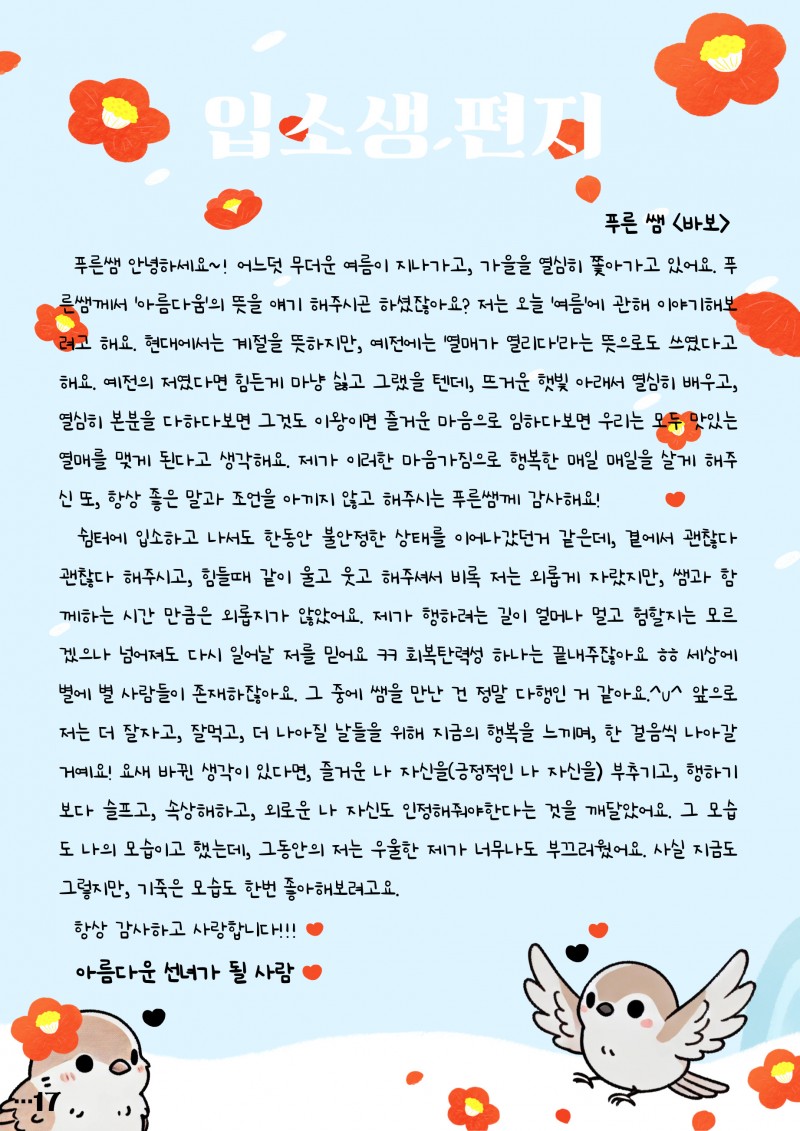 입소생 편지
푸른 쌤 <바보>
푸른쌤 안녕하세요~! 어느덧 무더운 여름이 지나가고, 가을을 열심히 쫓아가고 있어요. 푸
른쌤께서 '아름다움'의 뜻을 얘기 해주시곤 하셨잖아요? 저는 오늘 '여름'에 관해 이야기해보
려고 해요. 현대에서는 계절을 뜻하지만, 예전에는 '열매가 열리다'라는 뜻으로도 쓰였다고
해요. 예전의 저였다면 힘든게 마냥 싫고 그랬을 텐데, 뜨거운 햇빛 아래서 열심히 배우고,
열심히 본분을 다하다보면 그것도 이왕이면 즐거운 마음으로 임하다보면 우리는 모두 맛있는
열매를 맺게 된다고 생각해요. 제가 이러한 마음가짐으로 행복한 매일 매일을 살게 해주
신 또, 항상 좋은 말과 조언을 아끼지 않고 해주시는 푸른쌤께 감사해요!
쉼터에 입소하고 나서도 한동안 불안정한 상태를 이어나갔던거 같은데, 곁에서 괜찮다
괜찮다 해주시고, 힘들때 같이 울고 웃고 해주셔서 비록 저는 외롭게 자랐지만, 쌤과 함
께하는 시간 만큼은 외롭지가 않았어요. 제가 행하려는 길이 얼머나 멀고 험할지는 모르
겠으나 넘어져도 다시 일어날 저를 믿어요 ㅋㅋ 회복탄력성 하나는 끝내주잖아요 ㅎㅎ 세상에
별에 별 사람들이 존재하잖아요. 그 중에 쌤을 만난 건 정말 다행인 거 같아요.^∪^ 앞으로
저는 더 잘자고, 잘먹고, 더 나아질 날들을 위해 지금의 행복을 느끼며, 한 걸음씩 나아갈
거예요! 요새 바뀐 생각이 있다면, 즐거운 나 자신을(긍정적인 나 자신을) 부추기고, 행하기
보다 슬프고, 속상해하고, 외로운 나 자신도 인정해줘야한다는 것을 깨달았어요. 그 모습
도 나의 모습이고 했는데, 그동안의 저는 우울한 제가 너무나도 부끄러웠어요. 사실 지금도
그렇지만, 기죽은 모습도 한번 좋아해보려고요.
항상 감사하고 사랑합니다!!!
아름다운 선녀가 될 사람
···17